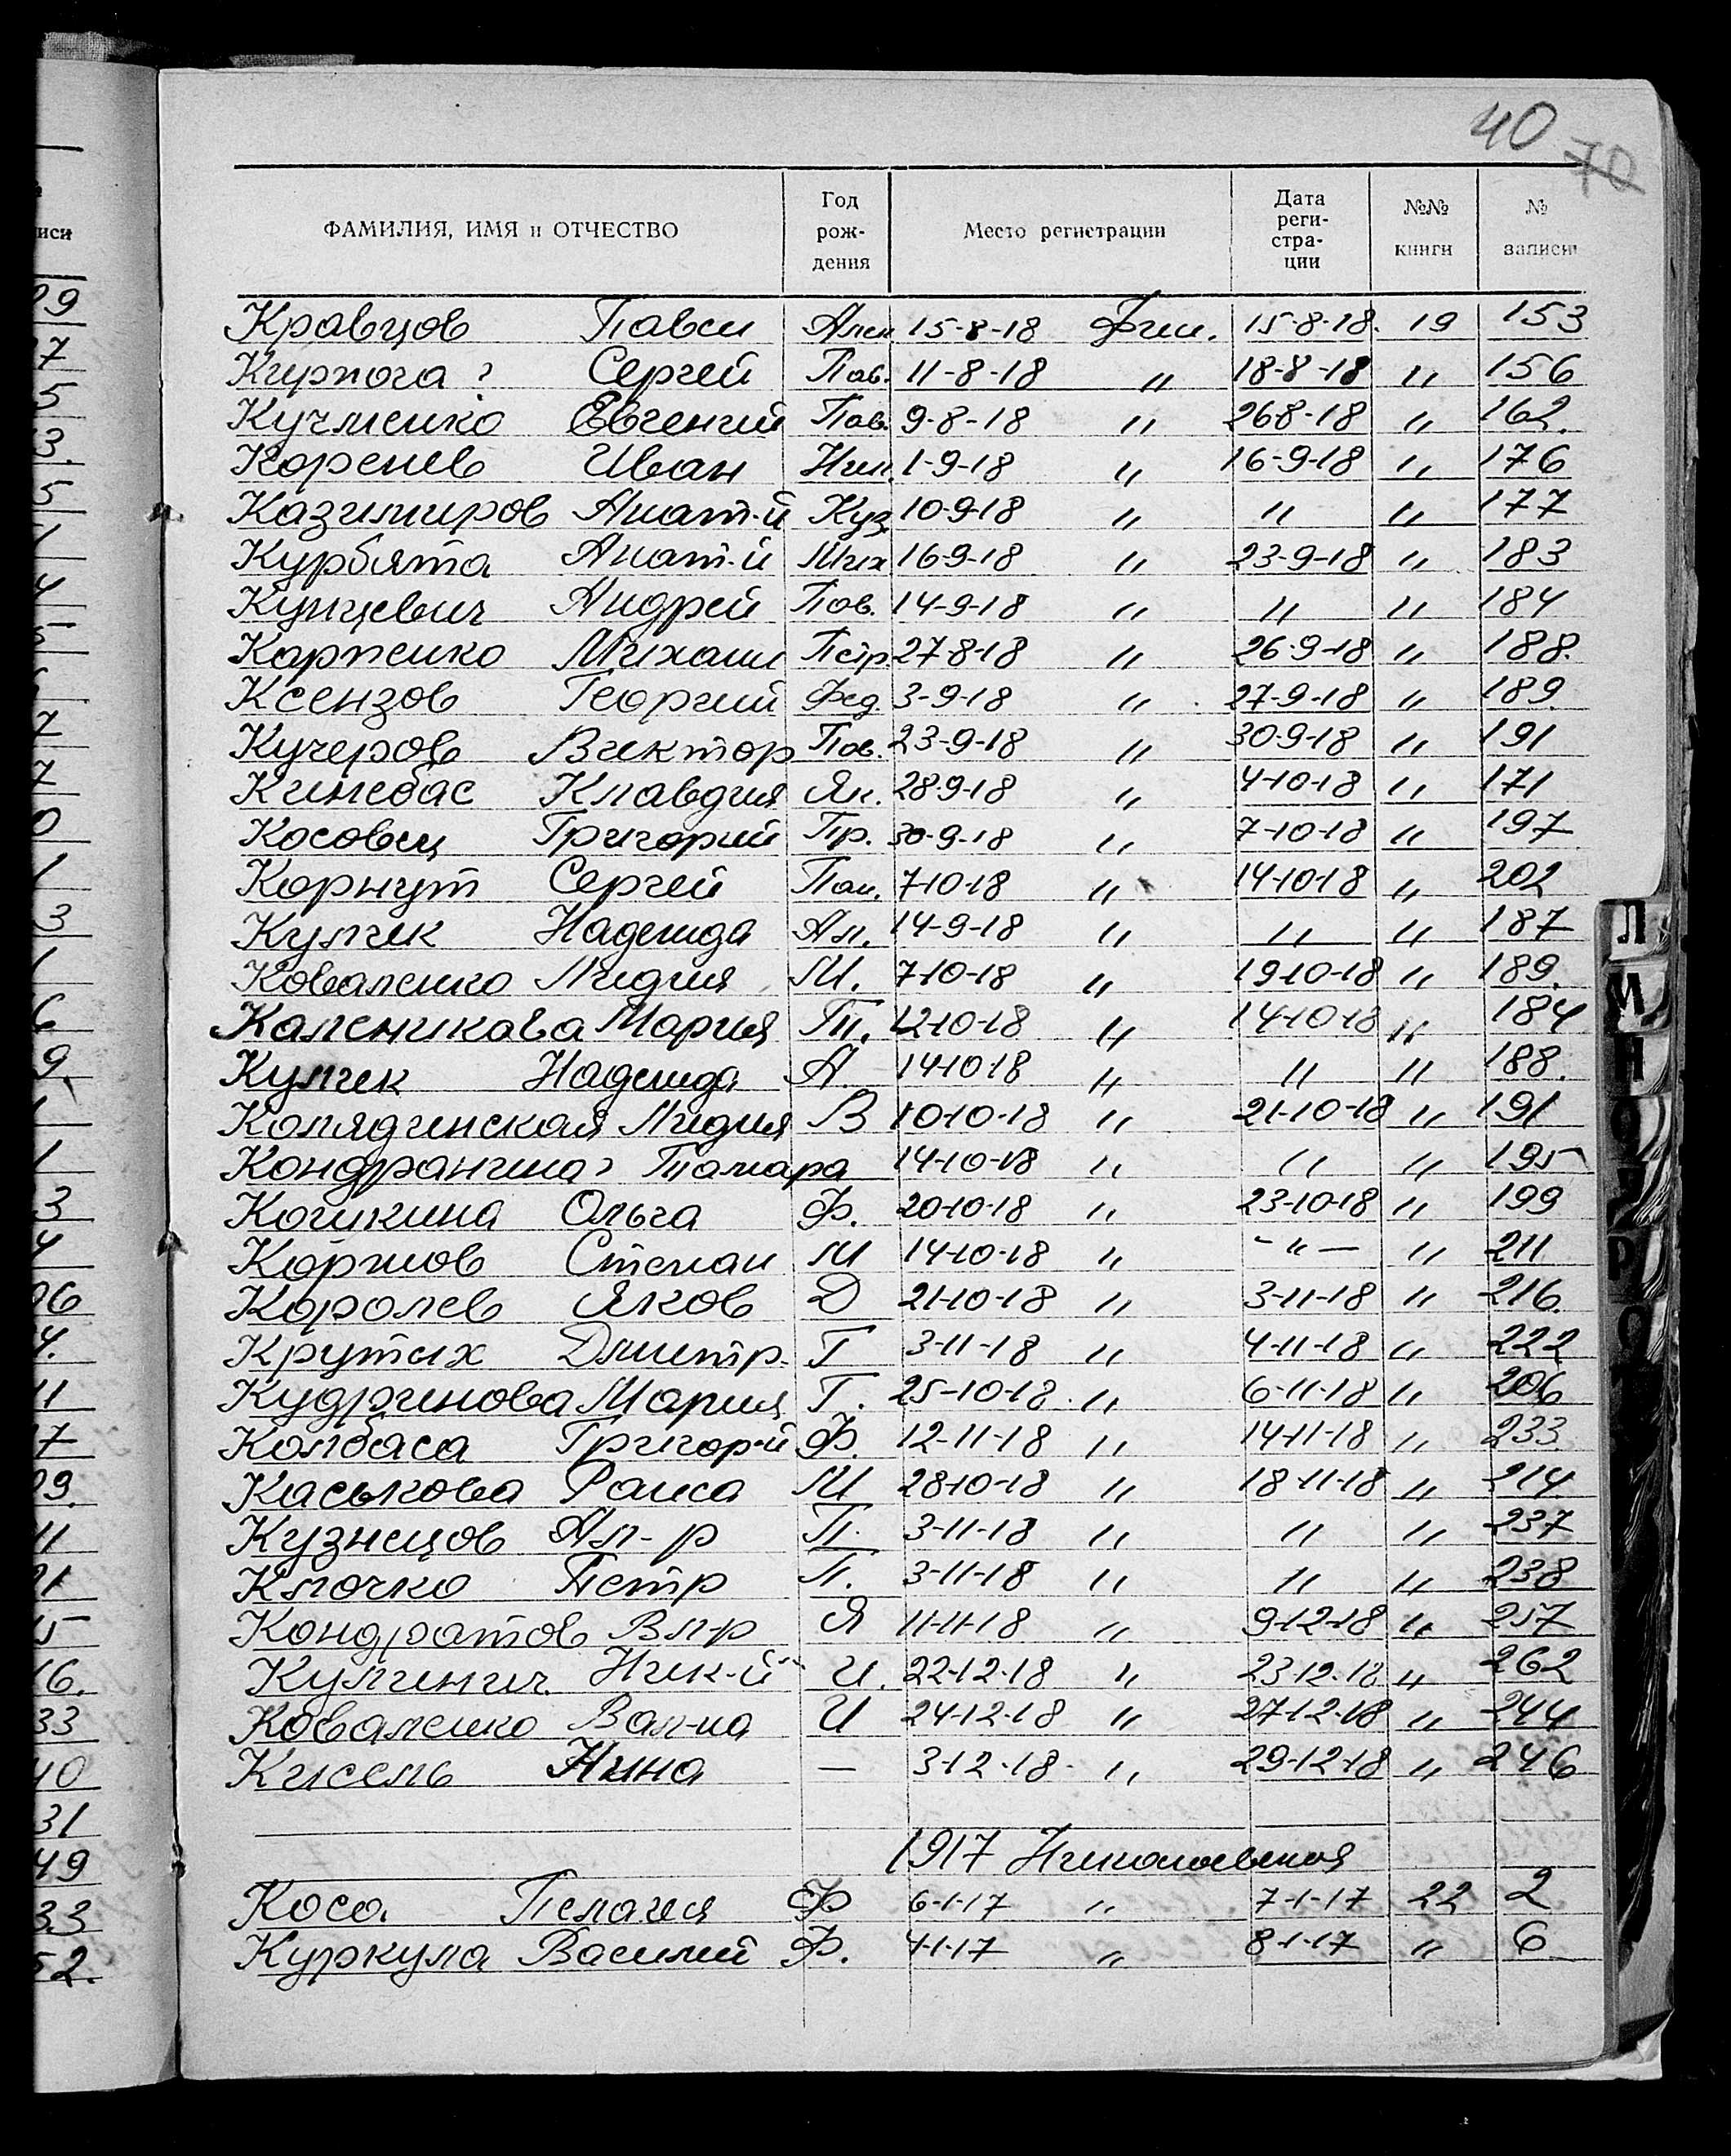 40
70
ФАМИЛИЯ, ИМЯ и ОТЧЕСТВО Год рождения Место регистрации Дата регистрации №№ книги № записи
Кравцов Павел Алек 15-8-18 Фил. 15-8-18. 19 153
Сергей Пав. 11-8-18 " 18-8-18 " 156
Кучменко Евгений Пав. 9-8-18 " 26-8-18 " 162.
Коренев Иван Ник. 1-9-18 " 16-9-18 " 176
Казимиров Анат-й Куз 10-9-18 " " " 177
Курбята Анат-й Мих 16-9-18 " 23-9-18 " 183
Кунцевич Андрей Пав. 14-9-18 " " " 184
Карпенко Михаил Петр 27-8-18 " 26-9-18 " 188.
Ксензов Георгий Фед. 3-9-18 " 27-9-18 " 189.
Кучеров Виктор Пав. 23-9-18 " 30-9-18 " 191
Кинебас Клавдия Як. 28-9-18 " 4-10-18 " 171
Косовец Григорий Гр. 30-9-18 " 7-10-18 " 197
Корнут Сергей Пан. 7-10-18 " 14-10-18 " 202
Кулик Надежда Ал. 14-9-18 " " " 187
Коваленко Лидия М. 7-10-18 " 19-10-18 " 189.
Каленикова Мария Т. 12-10-18 " 14-10-18 " 184
Надежда А 14-10-18 " " " 188.
Колядинская Лидия В 10-10-18 " 21-10-18 " 191
Тамара 14-10-18 " " " 195
Кошкина Ольга Ф. 20-10-18 " 23-10-18 " 199
Коржов Степан М 14-10-18 " - " - " 211
Королев Яков Д 21-10-18 " 3-11-18 " 216.
Крутых Дмитр. Г 3-11-18 " 4-11-18 " 222
Кудринова Мария Г. 25-10-18. " 6-11-18 " 206
Колбаса Григор-й Ф. 12-11-18 " 14-11-18 " 233
Каськова Раиса М 28-10-18 " 18-11-18 " 214
Кузнецов Ал-р П. 3-11-18 " " " 237
Клочко Петр Л. 3-11-18 " " " 238
Кондратов Вл-р Я 11-11-18 " 9-12-18 " 257
Кулинич Ник-й И. 22-12-18 " 23-12-18 " 262
Коваленко Вал-на И 24-12-18 " 27-12-18 " 244
Кисель Нина — 3-12-18. " 29-12-18 " 246
1917 Николаевская
Коса Пелагея Ф 6-1-17 " 7-1-17 22 2
Куркула Василий Ф. 4-1-17 " 8-1-17 " 6